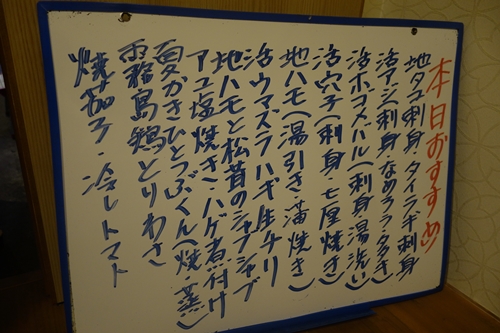 本日おすすめ
地タコ刺身・タイラギ刺身
活アジ(刺身・なめろう・タタキ)
活ホゴメバル(刺身・湯洗い)
活穴子(刺身・七厘焼き)
地ハモ(湯引き・蒲焼き)
活ウマズラハギ生チリ
地ハモと松茸のシャブシャブ
アユ塩焼き・ハゲ煮付け
夏かきひとつぶくん(焼・蒸)
霧島鶏とりわさ
焼茄子・冷しトマト